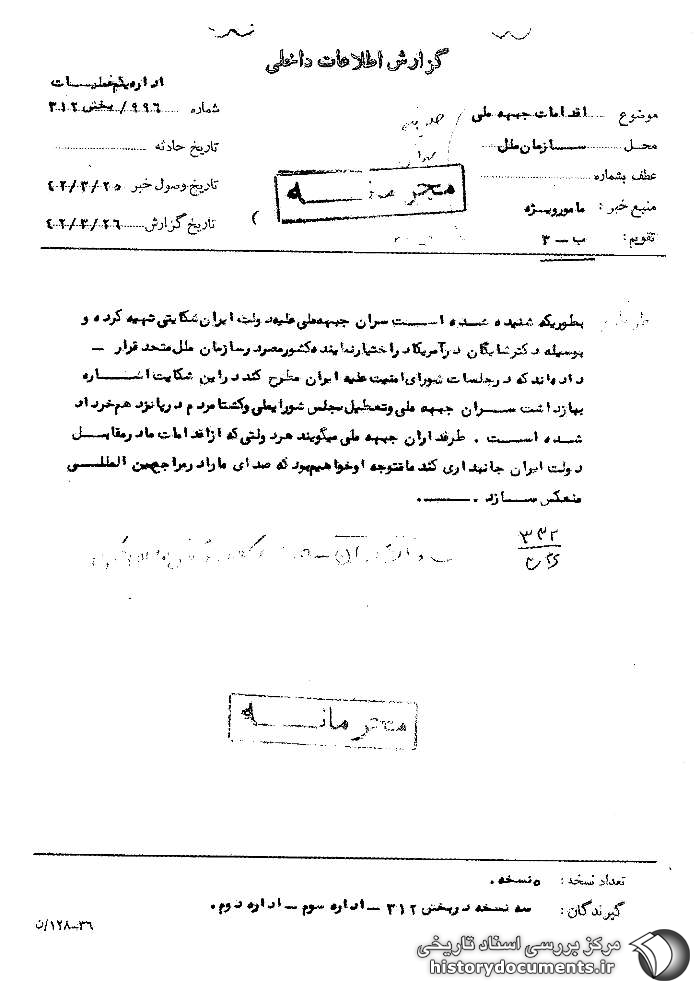 گزارش اطلاعات داخلی
اداره یکم عملیات
موضوع اقدامات جبهه ملی
شماره ۹۹۶/ بخش ۳۱۲
محل سازمان ملل
تاریخ حادثه
عطف بشماره
تاریخ وصول خبر ۴۲/۳/۲۵
محرمانه
منبع خبر: مامور ویژه
تاریخ گزارش ۴۲/۳/۲۶
تقویم: ب - ۳
بطوریکه شنیده شده است سران جبهه ملی علیه دولت ایران شکایتی تهیه کرده و
بوسیله دکتر شایگان در آمریکا در اختیار نماینده کشور مصر در سازمان ملل متحد قرار -
داده اند که در جلسات شورای امنیت علیه ایران مطرح کند در این شکایت اشاره
ببازداشت سران جبهه ملی و تعطیل مجلس شورایملی و کشتار مردم در پانزدهم خرداد
شده است . طرفداران جبهه ملی میگویند هر دولتی که از اقدامات ما در مقابل
دولت ایران جانبداری کند ما متوجه او خواهیم بود که صدای ما را در مراجع بین المللی
منعکس سازد .
۳۳۲
محرمانه
تعداد نسخه: ۵ نسخه .
گیرندگان: سه نسخه در بخش ۳۱۲ - اداره سوم - اداره دوم .
۳۶-۱۲۸/ن
مرکز بررسی اسناد تاریخی
historydocuments.ir